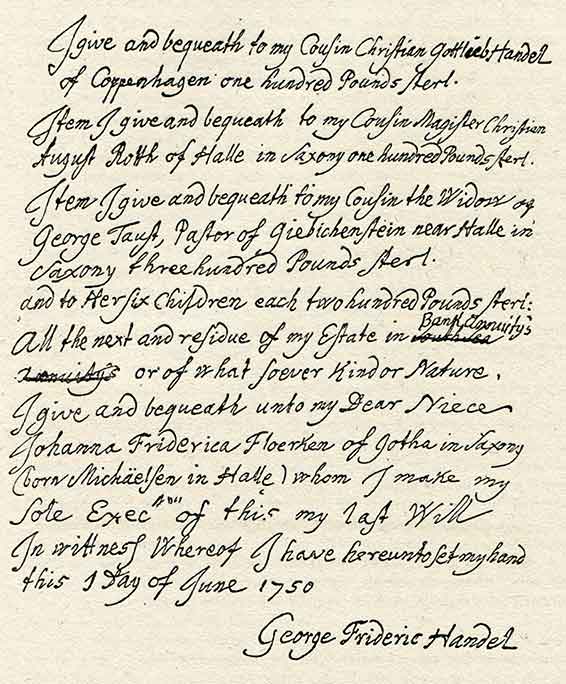 I give and bequeath to my Cousin Christian Gottlieb Handel
of Coppenhagen one hundred Pounds sterl.
Item I give and bequeath to my Cousin Magister Christian
August Rotth of Halle in Saxony one hundred Pounds sterl.
Item I give and bequeath to my Cousin the Widow of
George Taust, Pastor of Giebichenstein near Halle in
Saxony three hundred Pounds sterl.
and to Her six Children each two hundred Pounds sterl:
All the next and residue of my Estate in South Sea Bank Annuity's
Annuitys or of what soever Kind or Nature,
I give and bequeath unto my Dear Niece
Johanna Friderica Floerken of Gotha in Saxony
(born Michäelsen in Halle) whom I make my
Sole Exec of this my last Will
In wittness Whereof I have hereunto set my hand
this 1 Day of June 1750
George Frideric Handel